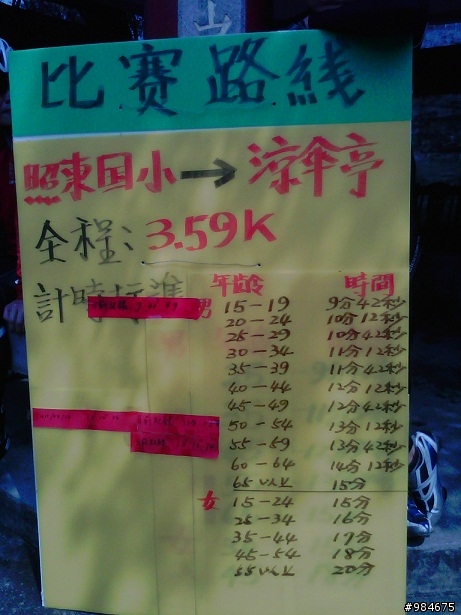 比賽路線
照東國小→涼傘亭
全程:3.59K
計時標準
年齡 時間
男 15-19 9分42秒
20-24 10分12秒
25-29 10分42秒
30-34 11分12秒
35-39 11分42秒
40-44 12分12秒
45-49 12分42秒
50-54 13分12秒
55-59 13分42秒
60-64 14分12秒
65以上 15分
女 15-24 15分
25-34 16分
35-44 17分
45-54 18分
55以上 20分
#984675